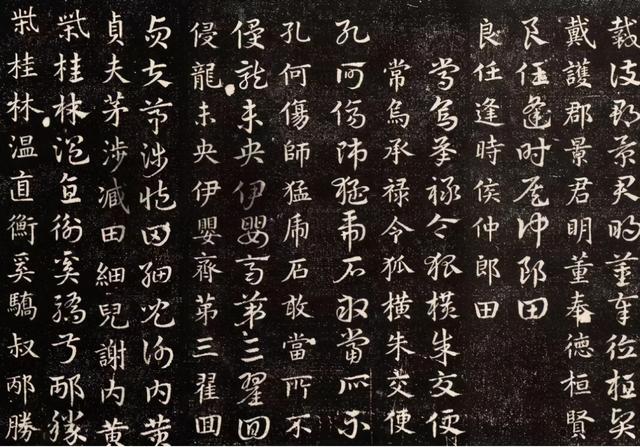 戴護郡景君明董奉德桓賢
戴護郡景君明董奉德桓賢
良任逢時侯仲郎田
良任逢時侯仲郎田
常烏承禄令狐横朱交便
常烏承禄令狐横朱交便
孔何傷師猛虎石敢當所不
孔何傷師猛虎石敢當所不
侵龍未央伊嬰齊第三翟回
侵龍未央伊嬰齊第三翟回
貞夫茅涉减田細兒謝内黄
貞夫茅涉减田細兒謝内黄
柴桂林温直衡奚驕叔邴勝
柴桂林温直衡奚驕叔邴勝